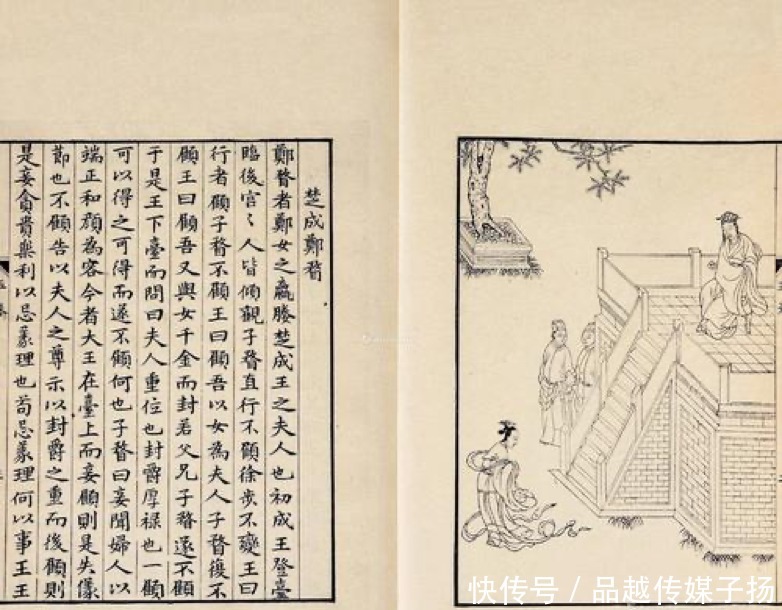 楚成鄭瞀
鄭瞀者鄭女之嬴媵楚成王之夫人也初成王登臺
臨後宮〻人皆傾觀子瞀直行不顧徐步不變王曰
行者顧子瞀不顧王曰顧吾以女為夫人子瞀復不
顧王曰顧吾又與女千金而封若父兄子瞀遂不顧
于是王下臺而問曰夫人重位也封爵厚祿也一顧
可以得之可得而遂不顧何也子瞀曰妾聞婦人以
端正和顏為容今者大王在臺上而妾顧則是失儀
節也不顧告以夫人之尊示以封爵之重而後顧則
是妾貪貴樂利以忘義理也苟忘義理何以事王王
快传号 / 品越传媒子扬